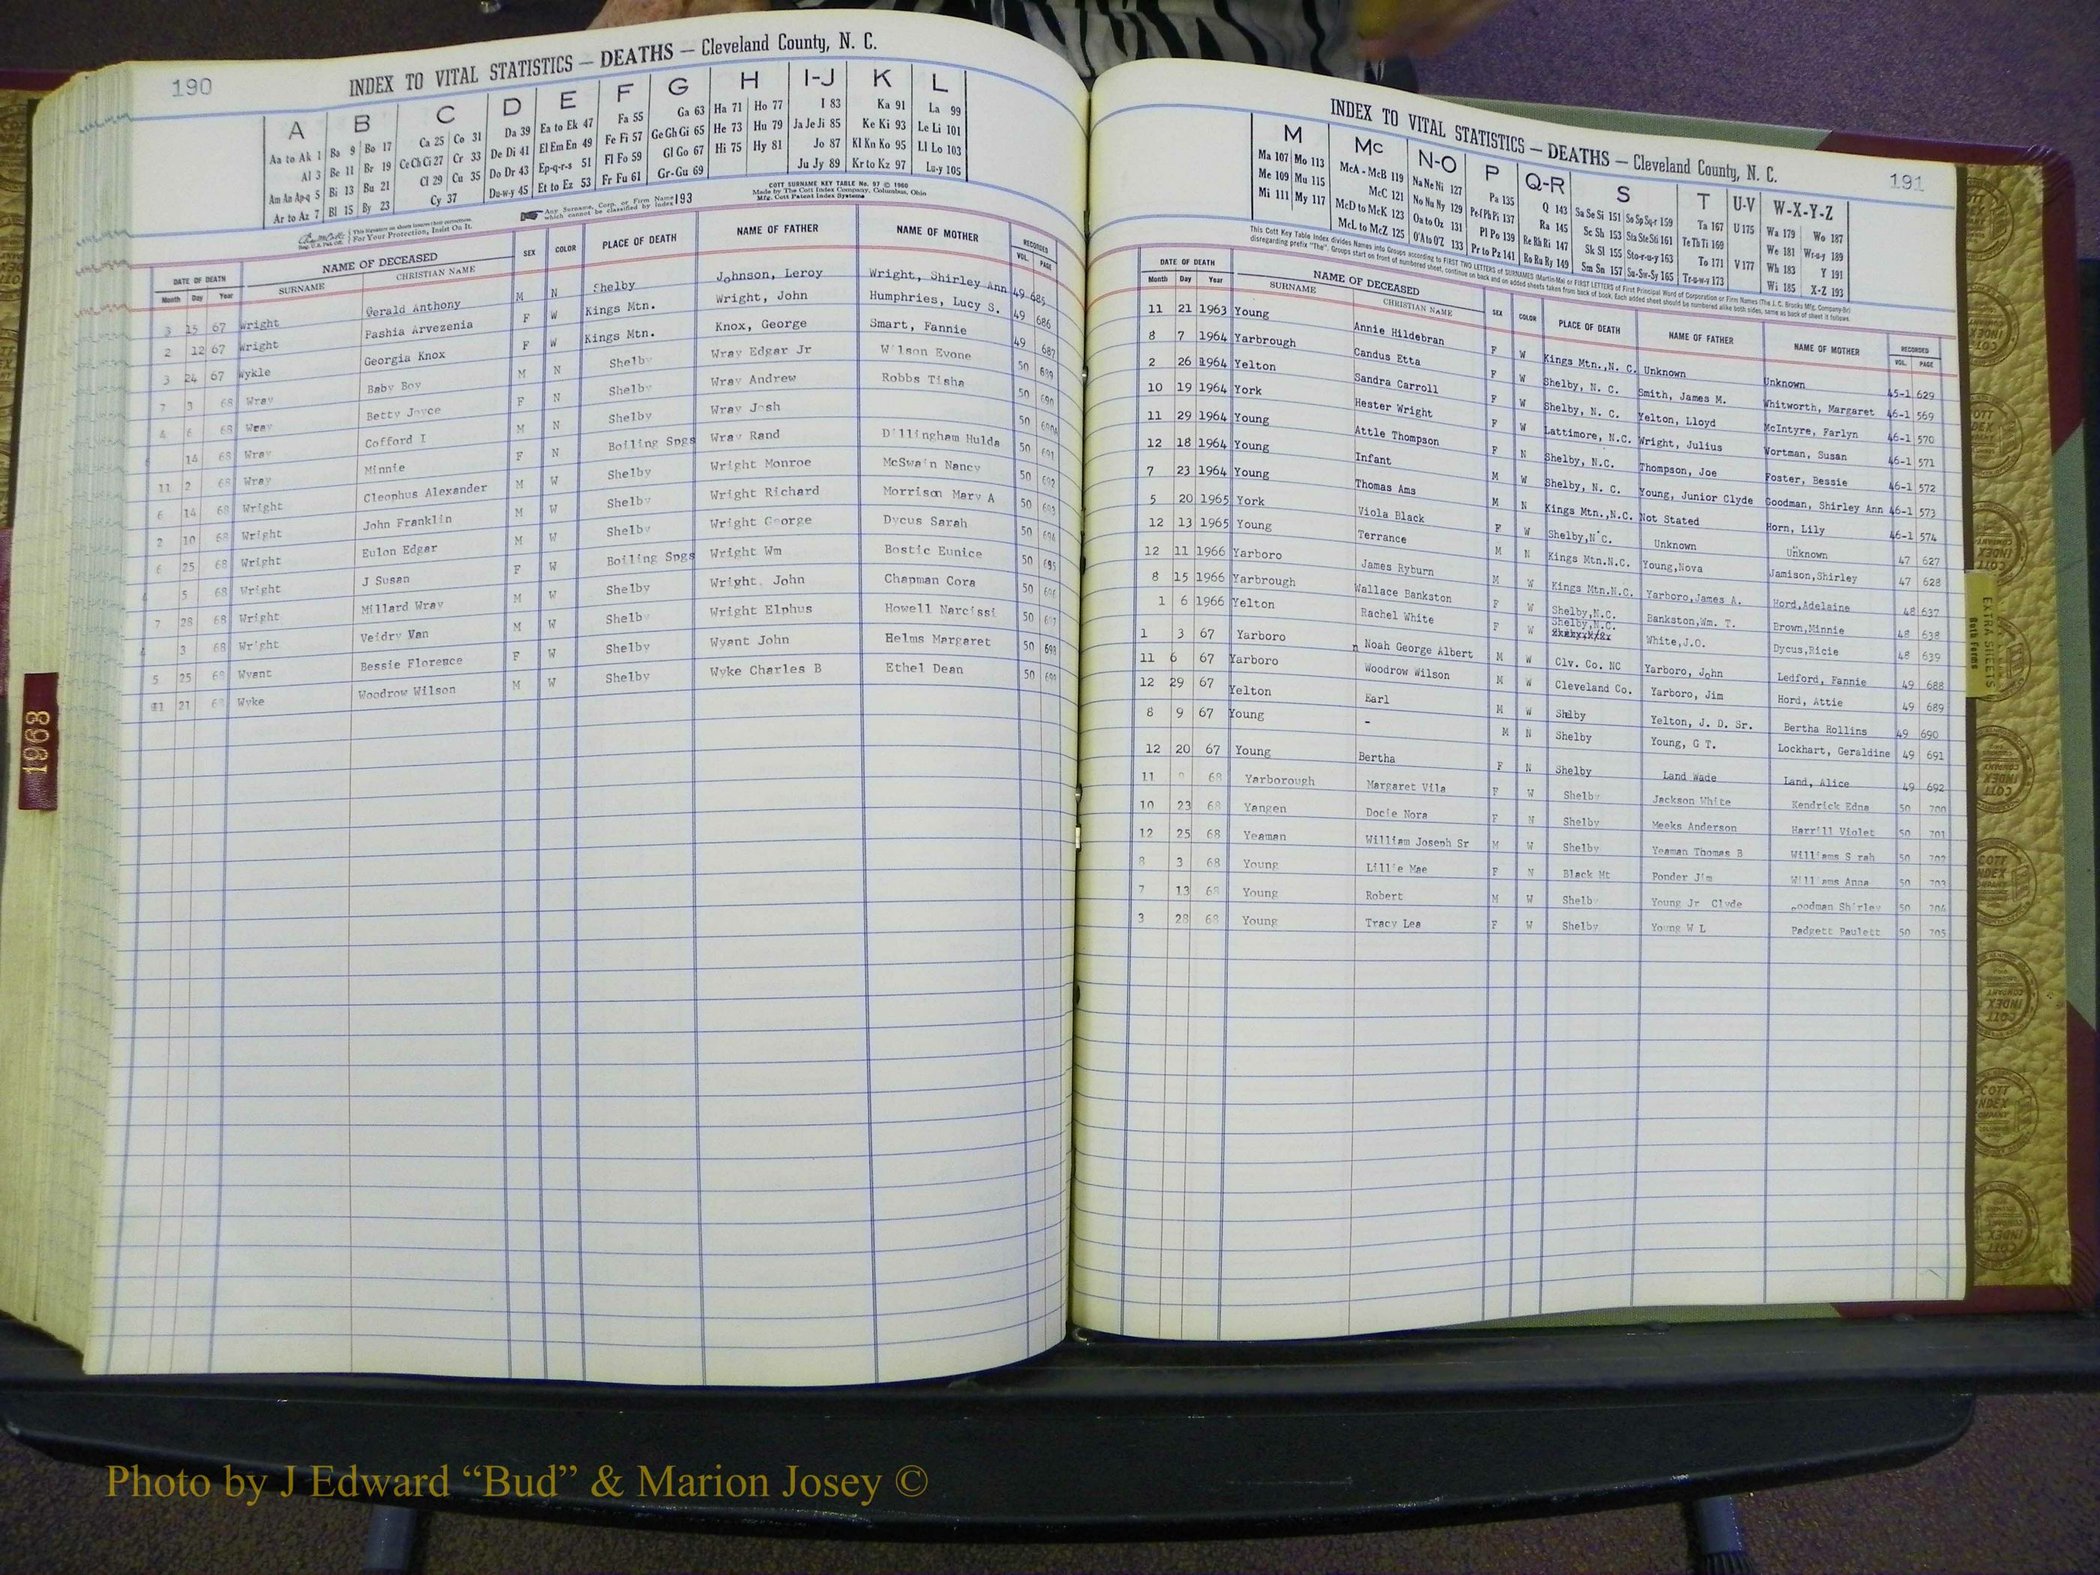 190
INDEX TO VITAL STATISTICS — DEATHS — Cleveland County, N. C.
A B C D E F G H I-J K L
Aa to Ak 1 Ba 9 Bo 17 Ca 25 Co 31 Da 39 Ea to Ek 47 Fa 55 Ga 63 Ha 71 Ho 77 I 83 Ka 91 La 99
Al 3 Be 11 Br 19 Ce Ch Ci 27 Cr 33 De Di 41 El Em En 49 Fe Fi 57 Ge Gh Gi 65 He 73 Hu 79 Ja Je Ji 85 Ke Ki 93 Le Li 101
Am An Ap-q 5 Bi 13 Bu 21 Cl 29 Cu 35 Do Dr 43 Ep-q-r-s 51 Fl Fo 59 Gl Go 67 Hi 75 Hy 81 Jo 87 Kl Kn Ko 95 Ll Lo 103
Ar to Az 7 Bl 15 By 23 Cy 37 Du-w-y 45 Et to Ez 53 Fr Fu 61 Gr-Gu 69 Ju Jy 89 Kr to Kz 97 Lu-y 105
COTT SURNAME KEY TABLE No. 97 © 1960
Made by The Cott Index Company, Columbus, Ohio
Mfg. Cott Patent Index Systems
Any Surname, Corp. or Firm Name which cannot be classified by Index 193
For Your Protection, Insist On It.
DATE OF DEATH NAME OF DECEASED SEX COLOR PLACE OF DEATH NAME OF FATHER NAME OF MOTHER RECORDED
Month Day Year SURNAME CHRISTIAN NAME VOL. PAGE
3 15 67 Wright Gerald Anthony M N Shelby Johnson, Leroy Wright, Shirley Ann 49 685
2 12 67 Wright Fashia Arvezenia F W Kings Mtn. Wright, John Humphries, Lucy S. 49 686
3 24 67 Wykle Georgia Knox F W Kings Mtn. Knox, George Smart, Fannie 49 687
7 3 68 Wray Baby Boy M N Shelby Wray Edgar Jr Wilson Evone 50 689
4 6 68 Wray Betty Joyce F N Shelby Wray Andrew Robbs Tisha 50 690
14 68 Wray Cofford I M N Shelby Wray Josh 50 690A
11 2 68 Wray Minnie F N Boiling Spgs Wray Rand Dillingham Hulda 50 691
6 14 68 Wright Cleophus Alexander M W Shelby Wright Monroe McSwain Nancy 50 692
2 10 68 Wright John Franklin M W Shelby Wright Richard Morrison Mary A 50 693
6 25 68 Wright Eulon Edgar M W Shelby Wright George Dycus Sarah 50 694
5 68 Wright J Susan F W Boiling Spgs Wright Wm Bostic Eunice 50 695
7 28 68 Wright Millard Wray M W Shelby Wright John Chapman Cora 50 696
3 68 Wright Veidry Van M W Shelby Wright Elphus Howell Narcissi 50 697
5 25 68 Wyant Bessie Florence F W Shelby Wyant John Helms Margaret 50 698
11 21 68 Wyke Woodrow Wilson M W Shelby Wyke Charles B Ethel Dean 50 699
1968
191
INDEX TO VITAL STATISTICS — DEATHS — Cleveland County, N. C.
M Mc N-O P Q-R S T U-V W-X-Y-Z
Ma 107 Mo 113 McA - McB 119 Na Ne Ni 127 Pa 135 Q 143 Sa Se Si 151 So Sp Sq-r 159 Ta 167 U 175 Wa 179 Wo 187
Me 109 Mu 115 McC 121 No Nu Ny 129 Pe-f Ph Pi 137 Ra 145 Sc Sh 153 Sta Ste Sti 161 Te Th Ti 169 We 181 Wr-u-y 189
Mi 111 My 117 McD to McK 123 Oa to Oz 131 Pl Po 139 Re Rh Ri 147 Sk Sl 155 Sto-r-u-y 163 To 171 V 177 Wh 183 Y 191
McL to McZ 125 O'A to O'Z 133 Pr to Pz 141 Ro Ru Ry 149 Sm Sn 157 Su-Sw-Sy 165 Tr-u-w-y 173 Wi 185 X-Z 193
This Cott Key Table Index divides Names into Groups according to FIRST TWO LETTERS of SURNAMES (Martin-Ma) or FIRST LETTERS of First Principal Word of Corporation or Firm Names (The J. C. Brooks Mfg. Company-Br)
disregarding prefix "The". Groups start on front of numbered sheet, continue on back and on added sheets taken from back of book. Each added sheet should be numbered alike both sides, same as back of sheet it follows.
DATE OF DEATH NAME OF DECEASED SEX COLOR PLACE OF DEATH NAME OF FATHER NAME OF MOTHER RECORDED
Month Day Year SURNAME CHRISTIAN NAME VOL. PAGE
11 21 1963 Young Annie Hildebran F W Kings Mtn.,N. C. Unknown Unknown 45-1 629
8 7 1964 Yarbrough Candus Etta F W Shelby, N. C. Smith, James M. Whitworth, Margaret 46-1 569
2 26 1964 Yelton Sandra Carroll F W Shelby, N. C. Yelton, Lloyd McIntyre, Farlyn 46-1 570
10 19 1964 York Hester Wright F W Lattimore, N.C. Wright, Julius Wortman, Susan 46-1 571
11 29 1964 Young Attle Thompson F N Shelby, N.C. Thompson, Joe Foster, Bessie 46-1 572
12 18 1964 Young Infant M W Shelby, N. C. Young, Junior Clyde Goodman, Shirley Ann 46-1 573
7 23 1964 Young Thomas Ams M N Kings Mtn.,N.C. Not Stated Horn, Lily 46-1 574
5 20 1965 York Viola Black F W Shelby,N.C. Unknown Unknown 47 627
12 13 1965 Young Terrance M N Kings Mtn.N.C. Young,Nova Jamison,Shirley 47 628
12 11 1966 Yarboro James Ryburn M W Kings Mtn.N.C. Yarboro,James A. Hord,Adelaine 48 637
8 15 1966 Yarbrough Wallace Bankston F W Shelby,N.C. Bankston,Wm. T. Brown,Minnie 48 638
1 6 1966 Yelton Rachel White F W Shelby,N.C. White,J.O. Dycus,Ricie 48 639
1 3 67 Yarboro Noah George Albert M W Clv. Co. NC Yarboro, John Ledford, Fannie 49 688
11 6 67 Yarboro Woodrow Wilson M W Cleveland Co. Yarboro, Jim Hord, Attie 49 689
12 29 67 Yelton Earl M W Shelby Yelton, J. D. Sr. Bertha Rollins 49 690
8 9 67 Young - M N Shelby Young, G T. Lockhart, Geraldine 49 691
12 20 67 Young Bertha F N Shelby Land Wade Land, Alice 49 692
11 68 Yarborough Margaret Vila F W Shelby Jackson White Kendrick Edna 50 700
10 23 68 Yangen Docie Nora F N Shelby Meeks Anderson Harrill Violet 50 701
12 25 68 Yeaman William Joseph Sr M W Shelby Yeaman Thomas B Williams S rah 50 702
8 3 68 Young Lillie Mae F N Black Mt Ponder Jim Williams Anna 50 703
7 13 68 Young Robert M W Shelby Young Jr Clyde Goodman Shirley 50 704
3 28 68 Young Tracy Lea F W Shelby Young W L Padgett Paulett 50 705
EXTRA SHEETS
Both Forms
COTT INDEX COMPANY
Photo by J Edward “Bud” & Marion Josey ©